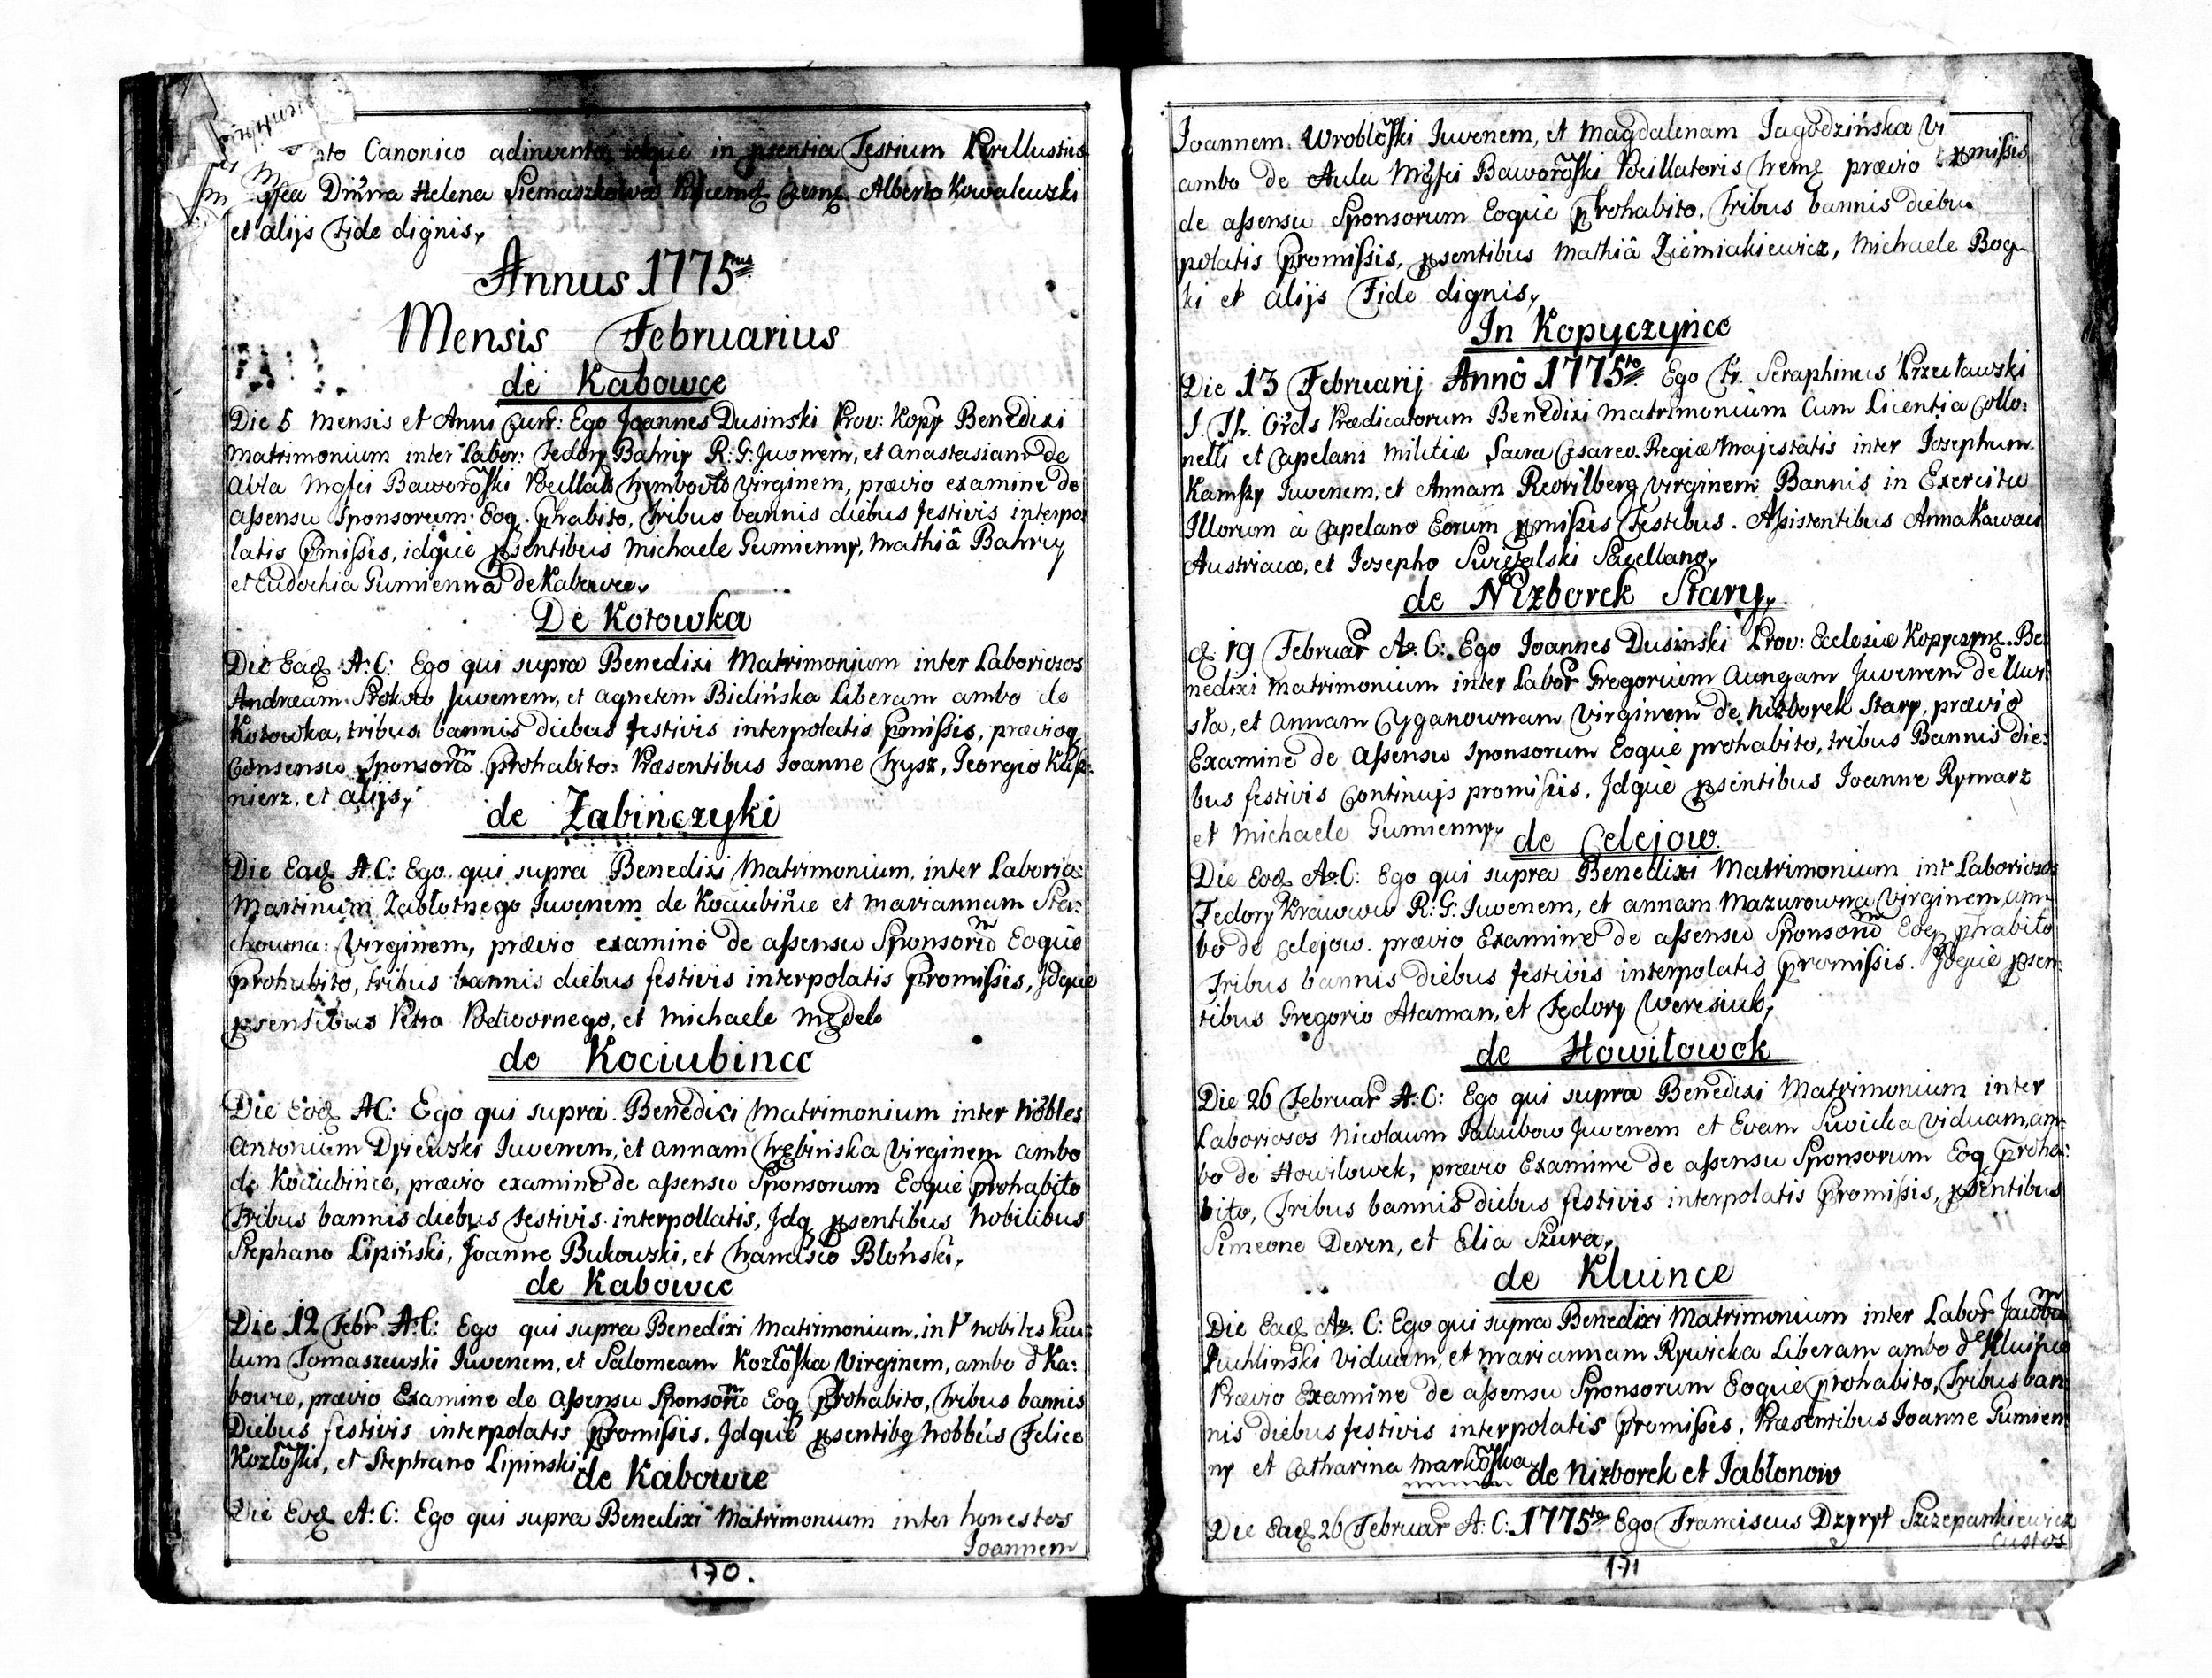 Canonico in Testium
Helena Alberto Kowalewski
et alijs Fide dignis,
Annus 1775
Mensis Februarius
de Kabowce
Die 5 Mensis et Anni Curr: Ego Joannes Dusinski Prov: Kopy Benedixi
Matrimonium inter Labor: Fedory Bahriy R:G: Juvenem, et Anastasiam de
Baworoski Virginem, prævio examine de
assensu Sponsorum Eoq. phabito, Tribus bannis diebus festivis interpo
latis pmissis, idque psentibus Michaele Gumienny, Mathiâ Bahriy
et Eudochia Gumienna de Kabowce,
De Kotowka
Die Ead A:C: Ego qui supra Benedixi Matrimonium inter Laboriosos
Andræam Juvenem, et Agnetem Bielińska Liberam ambo de
Kotowka, tribus bannis diebus festivis interpolatis pmissis, prævioq
Consensu Sponsorũ prohabito: Præsentibus Joanne Hrysz, Georgio Kuś:
nierz, et alijs,
de Zabińczyki
Die Ead A:C: Ego qui supra Benedixi Matrimonium inter Laborio:
Martinum Zabłotnego Juvenem de Kociubińce et Mariannam Sta:
chowna: Virginem, prævio examine de assensu Sponsorũ Eoque
prohabito, tribus bannis diebus festivis interpolatis Promissis, Idque
psentibus Petro Podwornego, et Michaele Mędelo
de Kociubince
Die Eod AC: Ego qui supra Benedixi Matrimonium inter Nobles
Antonium Juvenem, et Annam Virginem ambo
de Kociubińce, prævio examine de assensu Sponsorum Eoque prohabito
Tribus bannis diebus festivis interpollatis, Idq psentibus Nobilibus
Stephano Lipiński, Joanne Bukowski, et Francisco Błoński,
de Kabowce
Die 12 Febr A:C: Ego qui supra Benedixi Matrimonium intr nobiles Pau:
lum Tomaszewski Juvenem, et Salomeam Kozłoska Virginem, ambo d Ka:
bowce, prævio Examine de assensu Sponsorũ Eoq Prohabito, Tribus bannis
Diebus festivis interpolatis Promissis, Idque psentibq Nobbus Felice
Kozłoski, et Stephano Lipinski,
de Kabowce
Die Eod A:C: Ego qui supra Benedixi Matrimonium inter honestos
Joannem
170.
Joannem Wrobloski Juvenem, et Magdalenam Jagodzińska Vi
ambo de Aula Baworoski prævio
de assensu Sponsorum Eoque Prohabito, Tribus bannis diebu
polatis Promissis, psentibus Mathiâ Ziemiakiewicz, Michaele Bog
ki et alijs Fide dignis,
In Kopyczyńce
Die 13 Februarij Annô 1775to Ego Fr. Seraphinus Przecławski
S. Th. Ords Prædicatorum Benedixi Matrimonium Cum Licentia Collo:
nelli et Capelani Militiæ Sacræ Cesareo Regiæ Majestatis inter Josephum
Kamszy Juvenem, et Annam Reovilberg Virginem Bannis in Exercitu
Illorum à Capelano Eorum pmissis Testibus. Assistentibus Anna
Austriaca, et Josepho Swięzalski Sacellano,
de Nizborek Stary,
d. 19 Februar A. C: Ego Joannes Dusinski Prov: Ecclesiæ Kopyczyne. Be:
nedixi Matrimonium inter Labor Gregorium Juvenem de Uwi:
sla, et Annam Cyganownam Virginem de Nizborek Stary, prævio
Examine de Assensu Sponsorum Eoque prohabito, tribus Bannis die:
bus festivis Continujs promissis, Idque psentibus Joanne Rymarz
et Michaele Gumienny,
de Celejow.
Die Eod A.C: Ego qui supra Benedixi Matrimonium intr Laboriosos
Fedory R:G: Juvenem, et Annam Mazurowna Virginem, am
bo de Celejow. prævio Examine de assensu Sponsorũ Eoq phabito
Tribus bannis diebus festivis interpolatis Promissis. Idque psen:
tibus Gregorio Ataman, et Fedory Weresiub,
de Howiłowek
Die 26 Februar A:C: Ego qui supra Benedixi Matrimonium inter
Laboriosos Nicolaum Juvenem et Evam Viduam, am:
bo de Howiłowek, prævio Examine de assensu Sponsorum Eoq proha:
bito, Tribus bannis diebus festivis interpolatis Promissis, psentibus
Simeone Deren, et Elia Szura,
de Kluince
Die Ead A. C: Ego qui supra Benedixi Matrimonium inter Labor
Puchlinski Viduum, et Mariannam Rywicka Liberam ambo d
Prævio Examine de assensu Sponsorum Eoque prohabito, Tribus ban
nis diebus festivis interpolatis Promissis. Præsentibus Joanne Gumien
ny et Catharina Markoska
de Nizborek et Jabłonow
Die Ead 26 Februar A:C: 1775to Ego Franciscus Dzyryt Szczepankiewicz
Custos
171